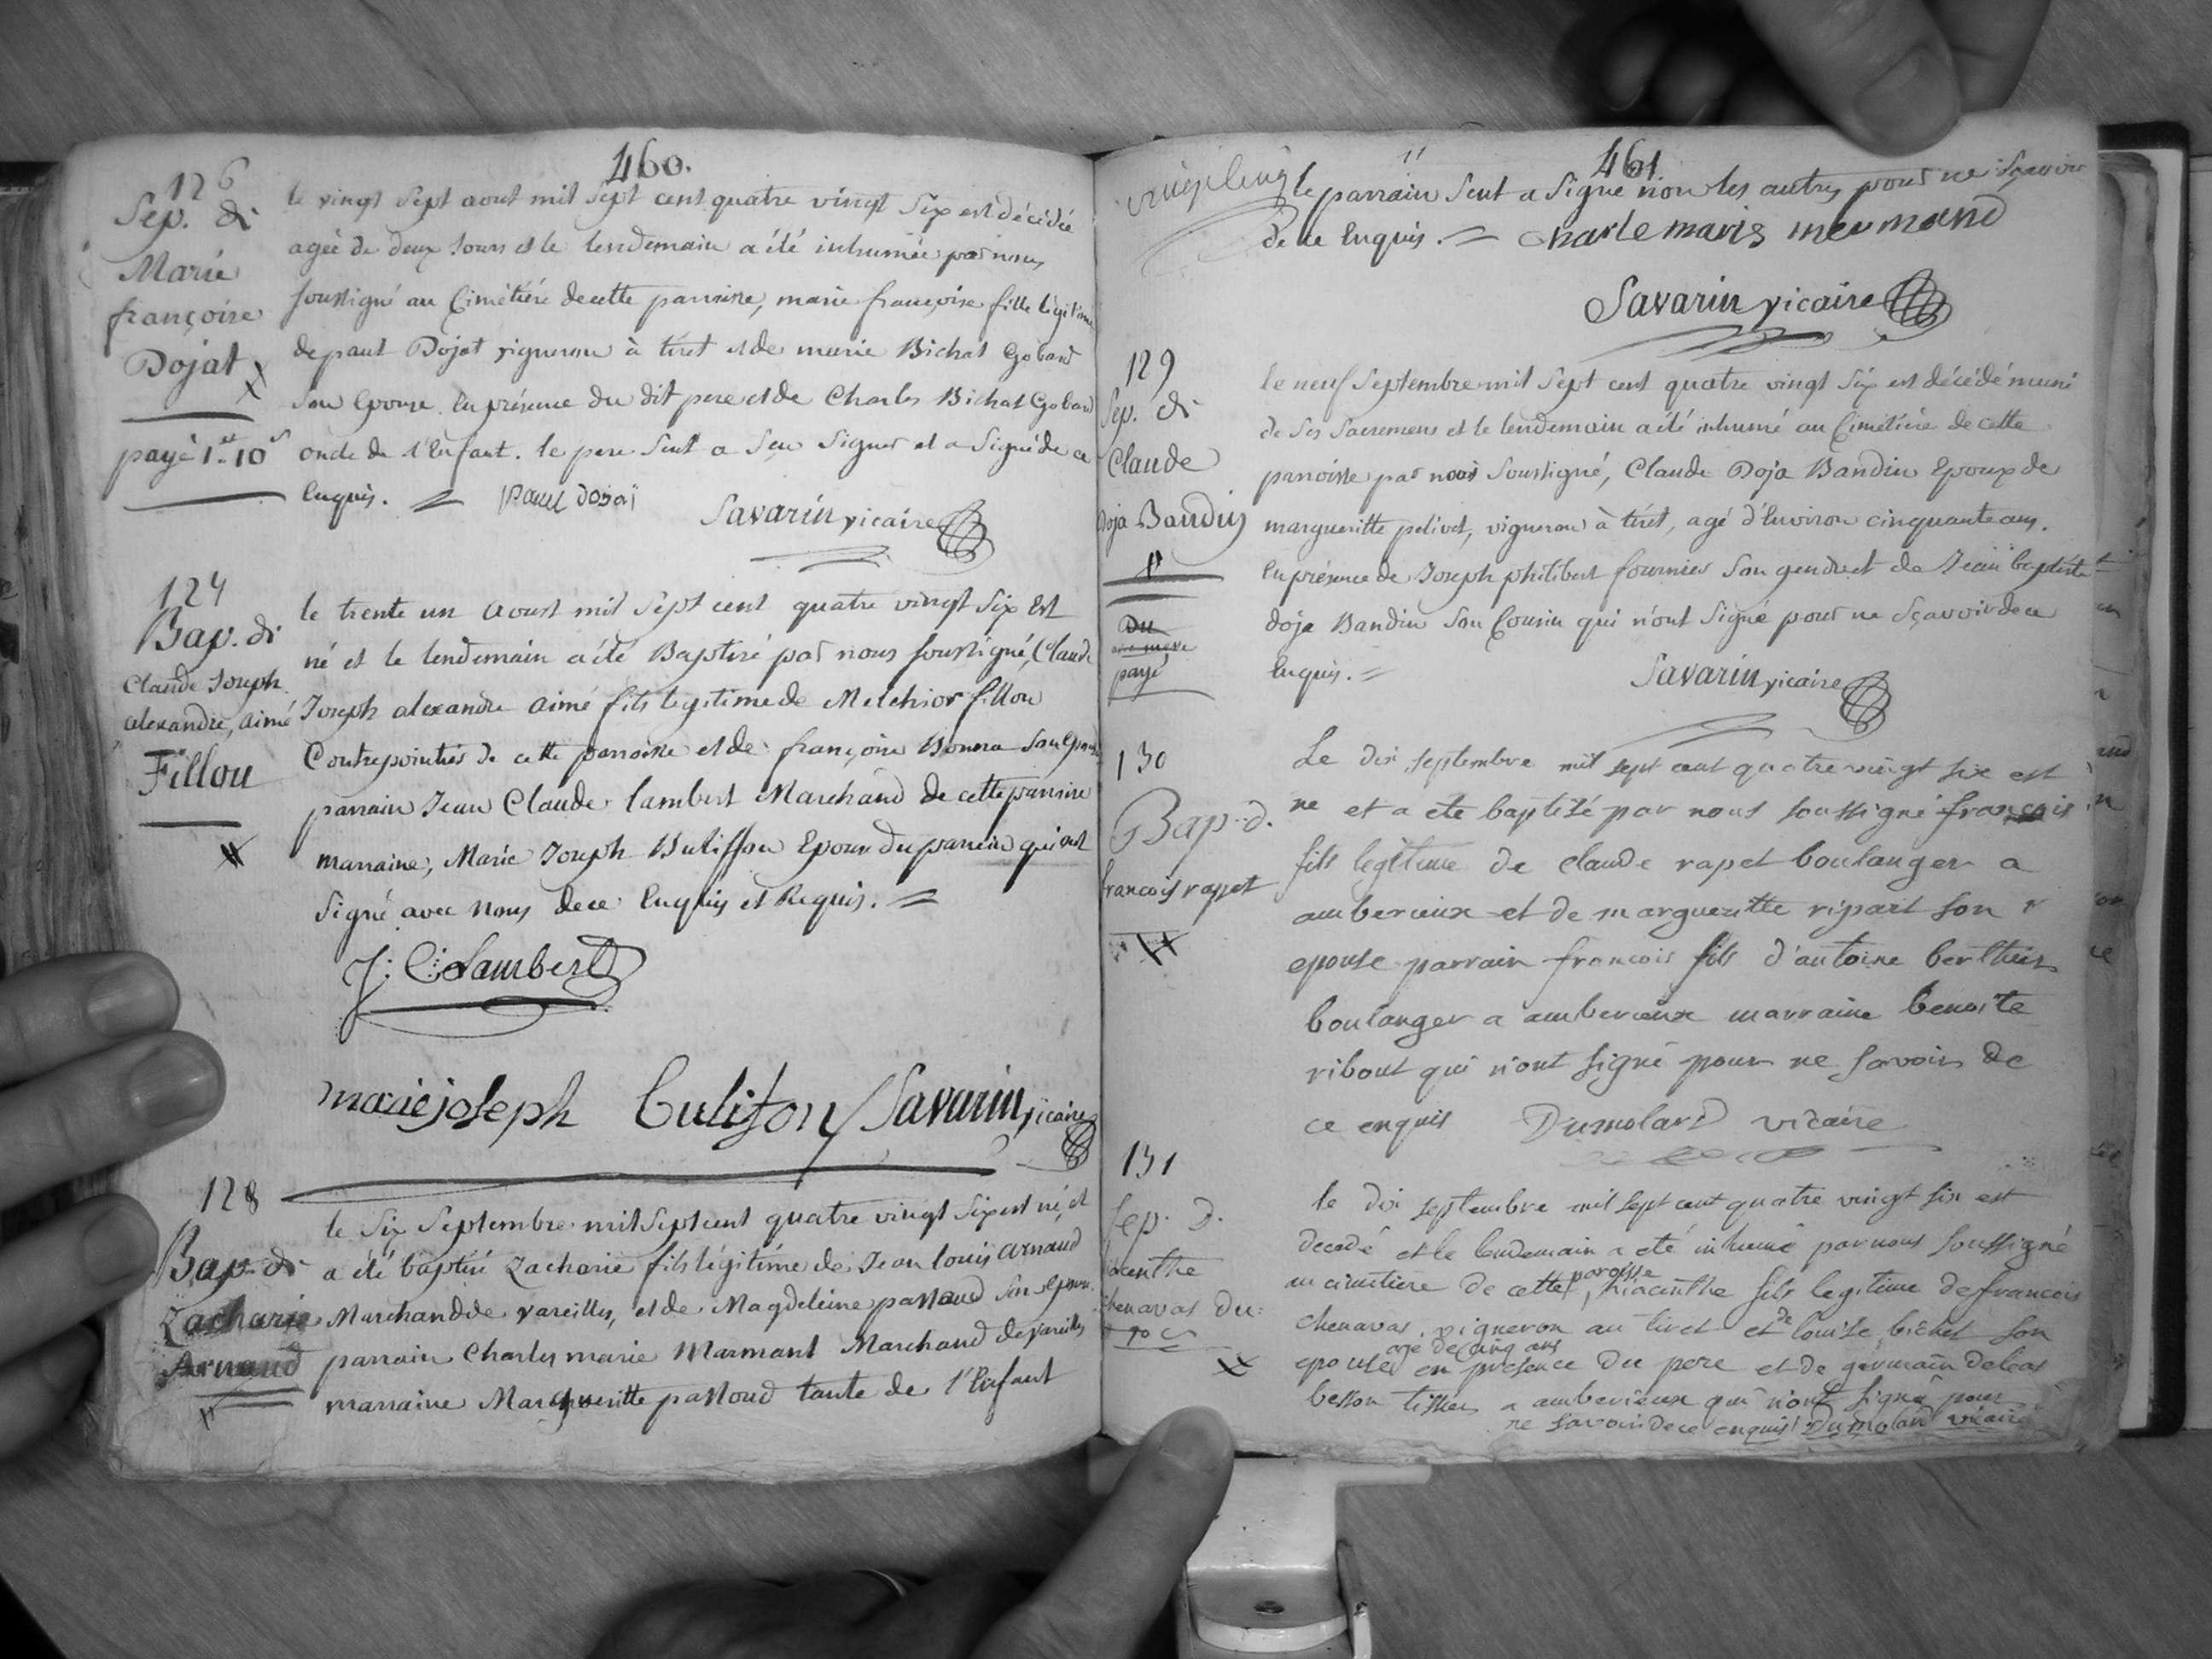 460.
126
Sep. de
Marie
françoise
Dojat
payé 1# 10s
le vingt Sept aout mil Sept cent quatre vingt Six est décédée
agée de deux Jours et le lendemain a été inhumée par nous
soussigné au Cimétiére de cette paroisse, marie françoise fille légitime
de paul Dojat vigneron à tiret et de marie Bichat Gobard
son Epouse. En présence du dit pere et de Charles Bichat Gobard
oncle de l'Enfant. le pere Seul a Sçu Signer et a Signé de ce
Enquis. paul dojai
Savarin vicaire
127
Bap. de
Claude Joseph
alexandre, aimé
Fillou
le trente un Aoust mil Sept cent quatre vingt Six Est
né et le lendemain a été Baptisé par nous soussigné, Claude
Joseph alexandre aimé fils legitime de Melchior fillou
Contrepointier de cette paroisse et de françoise Bonna son Epouse
parrain Jean Claude Lambert Marchand de cette paroisse
marraine, Marie Joseph Buliffon Epouse du parrain qui ont
Signé avec nous de ce Enquis et Requis.
J: C: Lambert
marie joseph buliffon Savarin vicaire
128
Bap. de
Zacharie
Arnaud
le Six Septembre mil Sept cent quatre vingt Six est né, et
a été baptisé Zacharie fils légitime de Jean louis Arnaud
Marchand de vareilles, et de Magdeleine passoud son epouse
parrain Charles marie Marmant Marchand de vareilles
marraine Margueritte passoud tante de l'Enfant
461.
le parrain Seul a Signé non les autres pour ne Sçavoir
de ce Enquis. Charle marie meumand
Savarin vicaire
129
Sep. de
Claude
Doja Bandin
payé
le neuf Septembre mil Sept cent quatre vingt Six est décédé muni
de Ses Sacremens et le lendemain a été inhumé au Cimétiére de cette
paroisse par nous Soussigné, Claude Doja Bandin Epoux de
margueritte pelivet, vigneron à tiret, agé d'Environ cinquante ans.
En présence de Joseph philibert fournier Son gendre et de Jean baptiste
doja Bandin Son Cousin qui n'ont Signé pour ne Sçavoir de ce
Enquis.
Savarin vicaire
130
Bap. d.
francois rappet
Le dix septembre mil sept cent quatre vingt six est
ne et a ete baptisé par nous soussigné francois
fils legitime de claude rapet boulanger a
amberieux et de margueritte ripart son
epouse parrain francois fils d'antoine berthier
boulanger a amberieux marraine benoite
ribout qui n'ont signé pour ne savoir de
ce enquis Dumolard vicaire
131
sep. d.
hiacenthe
chenavas du
le dix septembre mil sept cent quatre vingt six est
decedé et le lendemain a eté inhumé par nous soussigné
au cimetiere de cette paroisse, hiacinthe fils legitime de francois
chenavas, vigneron au tiret et de louise bichet son
epouse agé de cinq ans en presence du pere et de germain
besson tissier a amberieux qui n'ont signé pour
ne savoir de ce enquis Dumolard vicaire